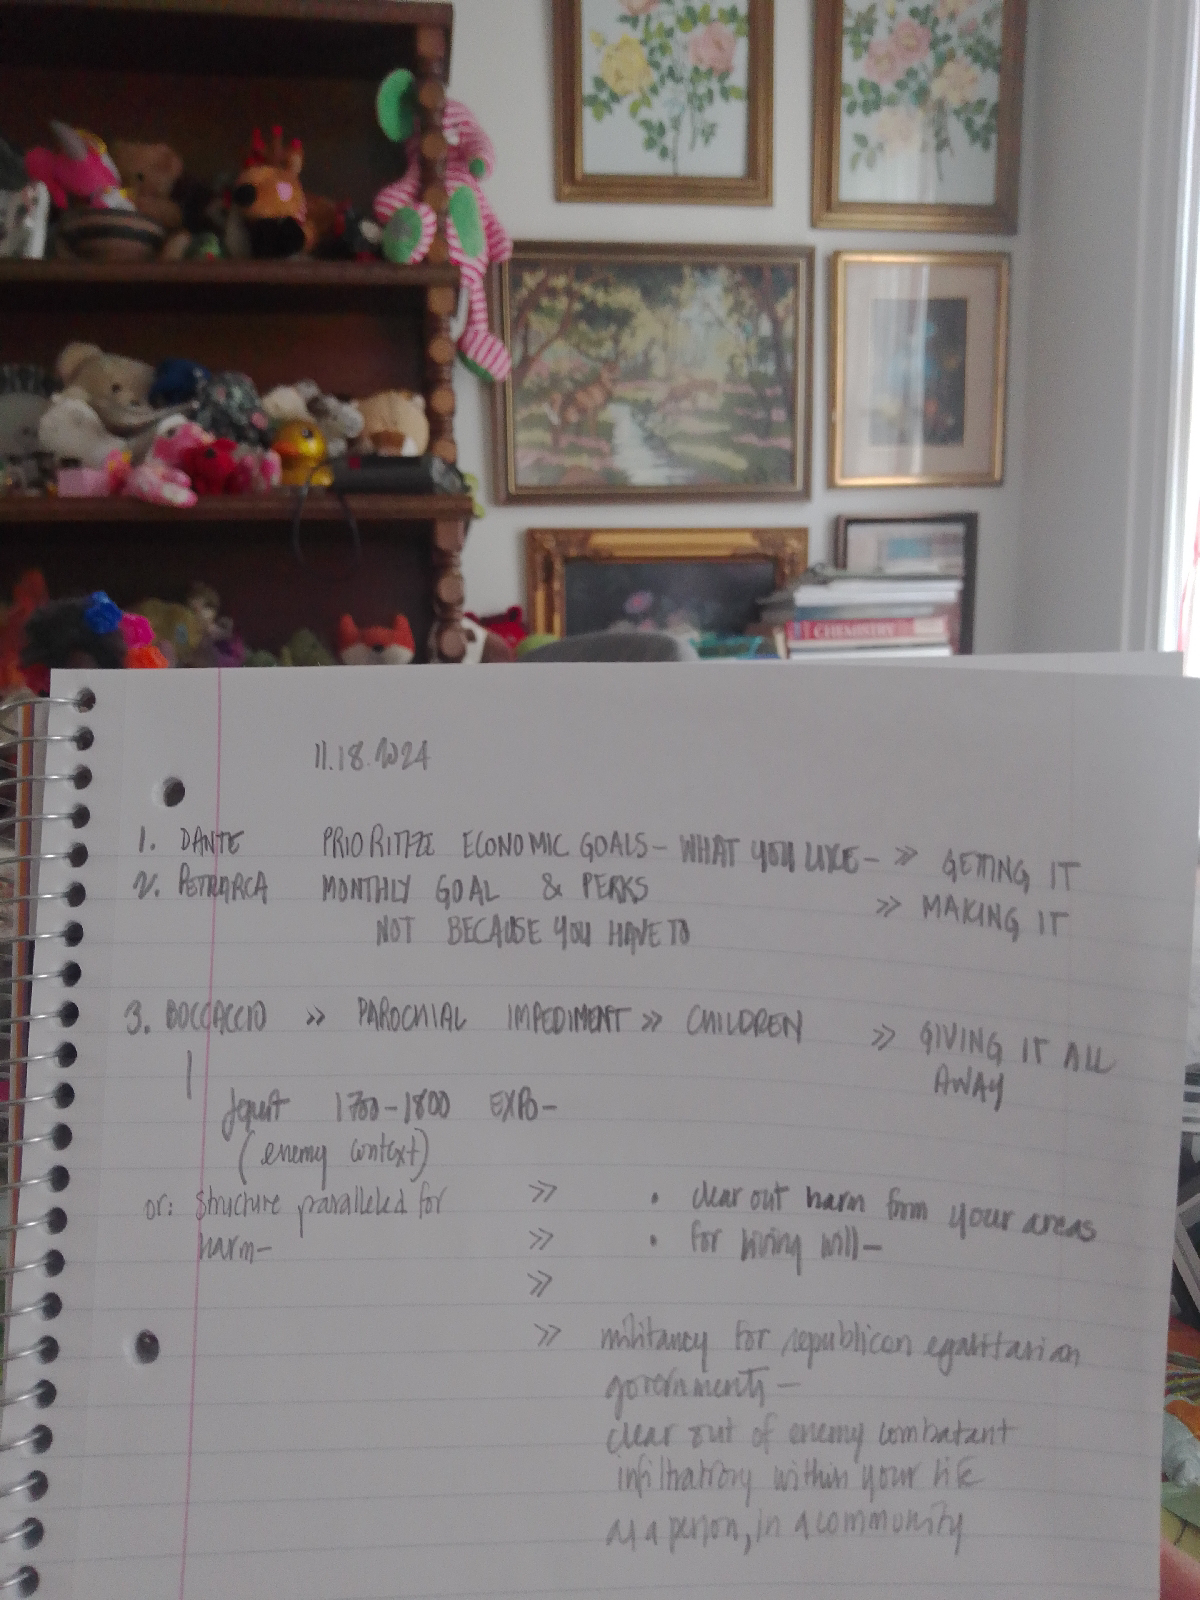 CHEMISTRY
11.18.2024
1. DANTE PRIORITIZE ECONOMIC GOALS - WHAT YOU LIKE - >> GETTING IT
2. PETRARCA MONTHLY GOAL & PERKS >> MAKING IT
NOT BECAUSE YOU HAVE TO
3. BOCCACCIO >> PAROCHIAL IMPEDIMENT >> CHILDREN >> GIVING IT ALL
AWAY
1700-1800 EXPO-
(enemy context)
or: structure paralleled for >> • clear out harm from your areas
harm- >> • for living will-
>>
>> militancy for republican egalitarian
governments -
clear out of enemy combatant
infiltratory within your life
as a person, in a community